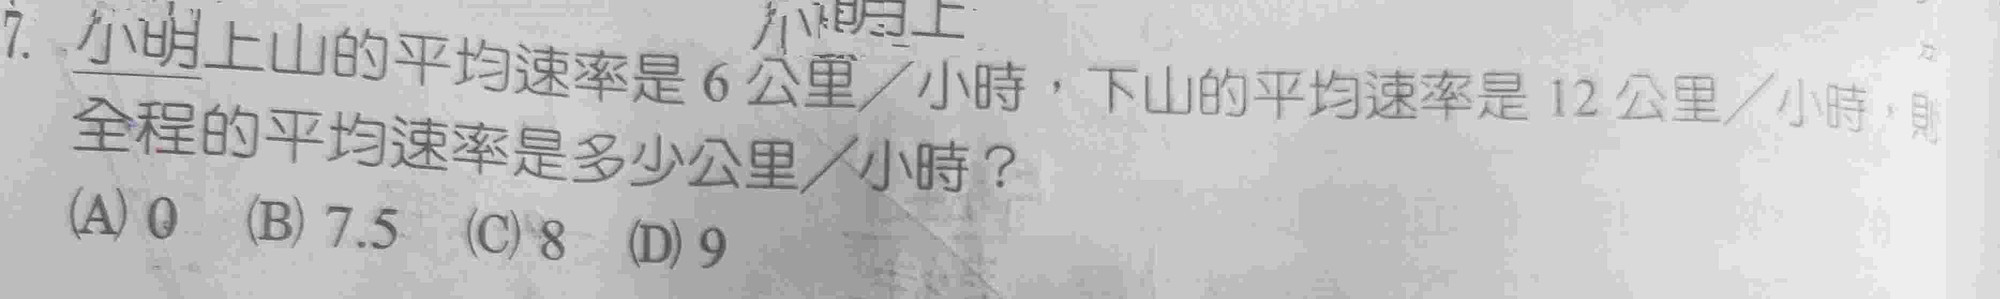 小明上
7. 小明上山的平均速率是 6 公里／小時，下山的平均速率是 12 公里／小時，則
全程的平均速率是多少公里／小時？
(A) 0 (B) 7.5 (C) 8 (D) 9